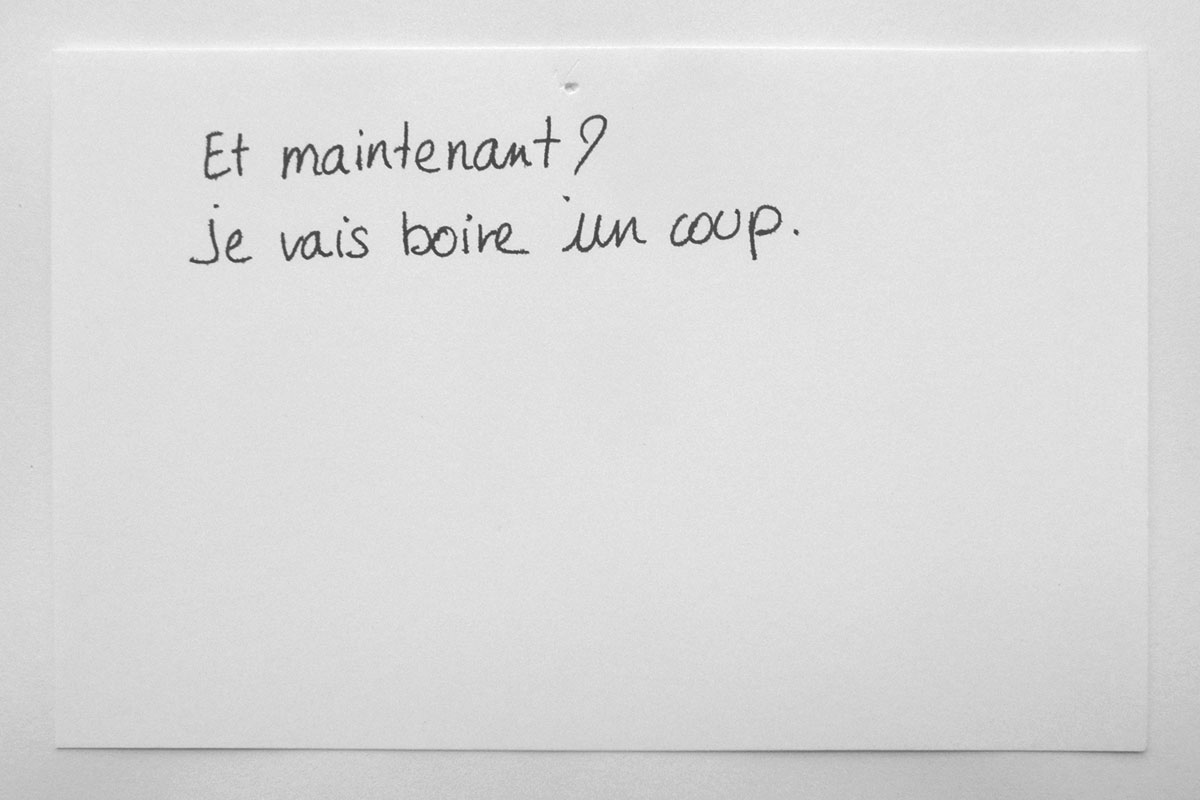 Et maintenant ?
je vais boire un coup.